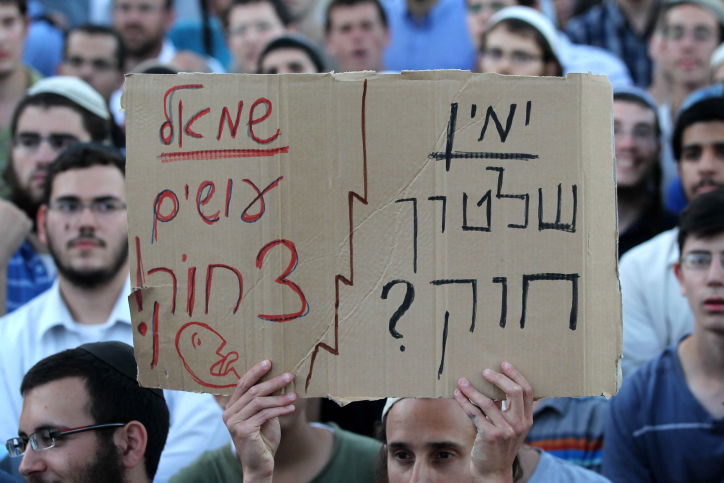 ימין
שלטון
חוק?
שמאל
עושים
צחוק!